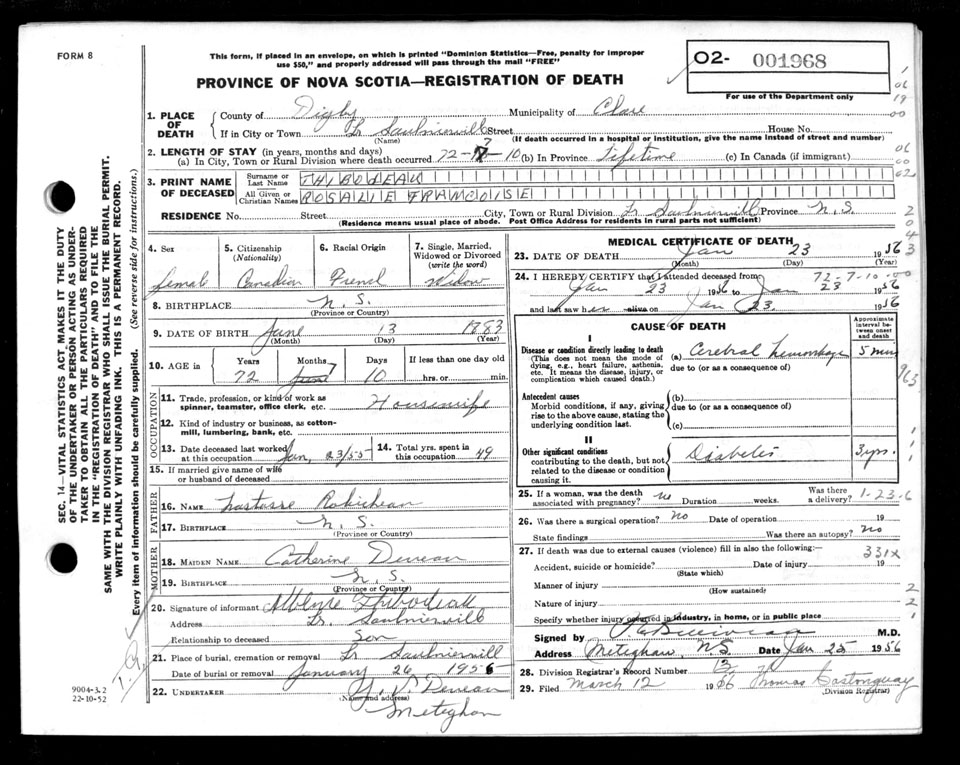 FORM 8
This form, if placed in an envelope, on which is printed "Dominion Statistics—Free, penalty for improper
use $50," and properly addressed will pass through the mail "FREE"
PROVINCE OF NOVA SCOTIA—REGISTRATION OF DEATH
O2- 001968
For use of the Department only
1. PLACE OF DEATH
County of Digby Municipality of Clare
If in City or Town Lr Saulnierville Street House No.
(Name) (If death occurred in a hospital or institution, give the name instead of street and number)
2. LENGTH OF STAY (in years, months and days)
(a) In City, Town or Rural Division where death occurred 72-7-10 (b) In Province Lifetime (c) In Canada (if immigrant)
3. PRINT NAME OF DECEASED
Surname or Last Name THIBODEAU
All Given or Christian Names ROSALIE FRANCOISE
RESIDENCE No. Street City, Town or Rural Division Lr Saulnierville Province N.S.
(Residence means usual place of abode. Post Office Address for residents in rural parts not sufficient)
4. Sex
female
5. Citizenship (Nationality)
Canadian
6. Racial Origin
French
7. Single, Married, Widowed or Divorced (write the word)
Widow
8. BIRTHPLACE N.S.
(Province or Country)
9. DATE OF BIRTH June 13 1883
(Month) (Day) (Year)
10. AGE in Years Months Days If less than one day old
72 7 10 hrs. or min.
OCCUPATION
11. Trade, profession, or kind of work as
spinner, teamster, office clerk, etc. Housewife
12. Kind of industry or business, as cotton-
mill, lumbering, bank, etc.
13. Date deceased last worked
at this occupation Jan. 23/55
14. Total yrs. spent
in this occupation 49
15. If married give name of wife
or husband of deceased
FATHER
16. NAME
17. BIRTHPLACE N.S.
(Province or Country)
MOTHER
18. MAIDEN NAME Catherine Deveau
19. BIRTHPLACE N.S.
(Province or Country)
20. Signature of informant Thibodeau
Address Lr. Saulnierville
Relationship to deceased Son
21. Place of burial, cremation or removal Lr Saulnierville
Date of burial or removal January 26 1956
22. UNDERTAKER Deveau
(Name and address)
Meteghan
MEDICAL CERTIFICATE OF DEATH
23. DATE OF DEATH Jan 23 1956
(Month) (Day) (Year)
72-7-10-00
24. I HEREBY CERTIFY that I attended deceased from
Jan 23 1956 to Jan 23 1956
and last saw her alive on Jan 23. 1956
CAUSE OF DEATH
Approximate interval between onset and death
I
Disease or condition directly leading to death
(This does not mean the mode of
dying, e.g., heart failure, asthenia,
etc. It means the disease, injury, or
complication which caused death.)
(a) Cerebral hemorrhage 5 min
due to (or as a consequence of)
Antecedent causes
Morbid conditions, if any, giving
rise to the above cause, stating the
underlying condition last.
(b)
due to (or as a consequence of)
(c)
II
Other significant conditions
contributing to the death, but not
related to the disease or condition
causing it.
Diabetes 3 yrs.
25. If a woman, was the death
associated with pregnancy? no Duration weeks. Was there a delivery?
1-23-6
26. Was there a surgical operation? no Date of operation 19
State findings Was there an autopsy? no
27. If death was due to external causes (violence) fill in also the following:
331X
Accident, suicide or homicide? Date of injury 19
(State which)
Manner of injury
(How sustained)
Nature of injury
Specify whether injury occurred in industry, in home, or in public place
Signed by M.D.
Address Meteghan, N.S. Date Jan 25 1956
28. Division Registrar's Record Number 13
29. Filed March 12 1956 Thomas Castonguay
(Division Registrar)
SEC. 14—VITAL STATISTICS ACT MAKES IT THE DUTY
OF THE UNDERTAKER OR PERSON ACTING AS UNDER-
TAKER TO OBTAIN ALL THE PARTICULARS REQUIRED
IN THE "REGISTRATION OF DEATH" AND TO FILE THE
SAME WITH THE DIVISION REGISTRAR WHO SHALL ISSUE THE BURIAL PERMIT.
WRITE PLAINLY WITH UNFADING INK. THIS IS A PERMANENT RECORD.
Every item of information should be carefully supplied. (See reverse side for instructions.)
9004-3.2
22-10-52